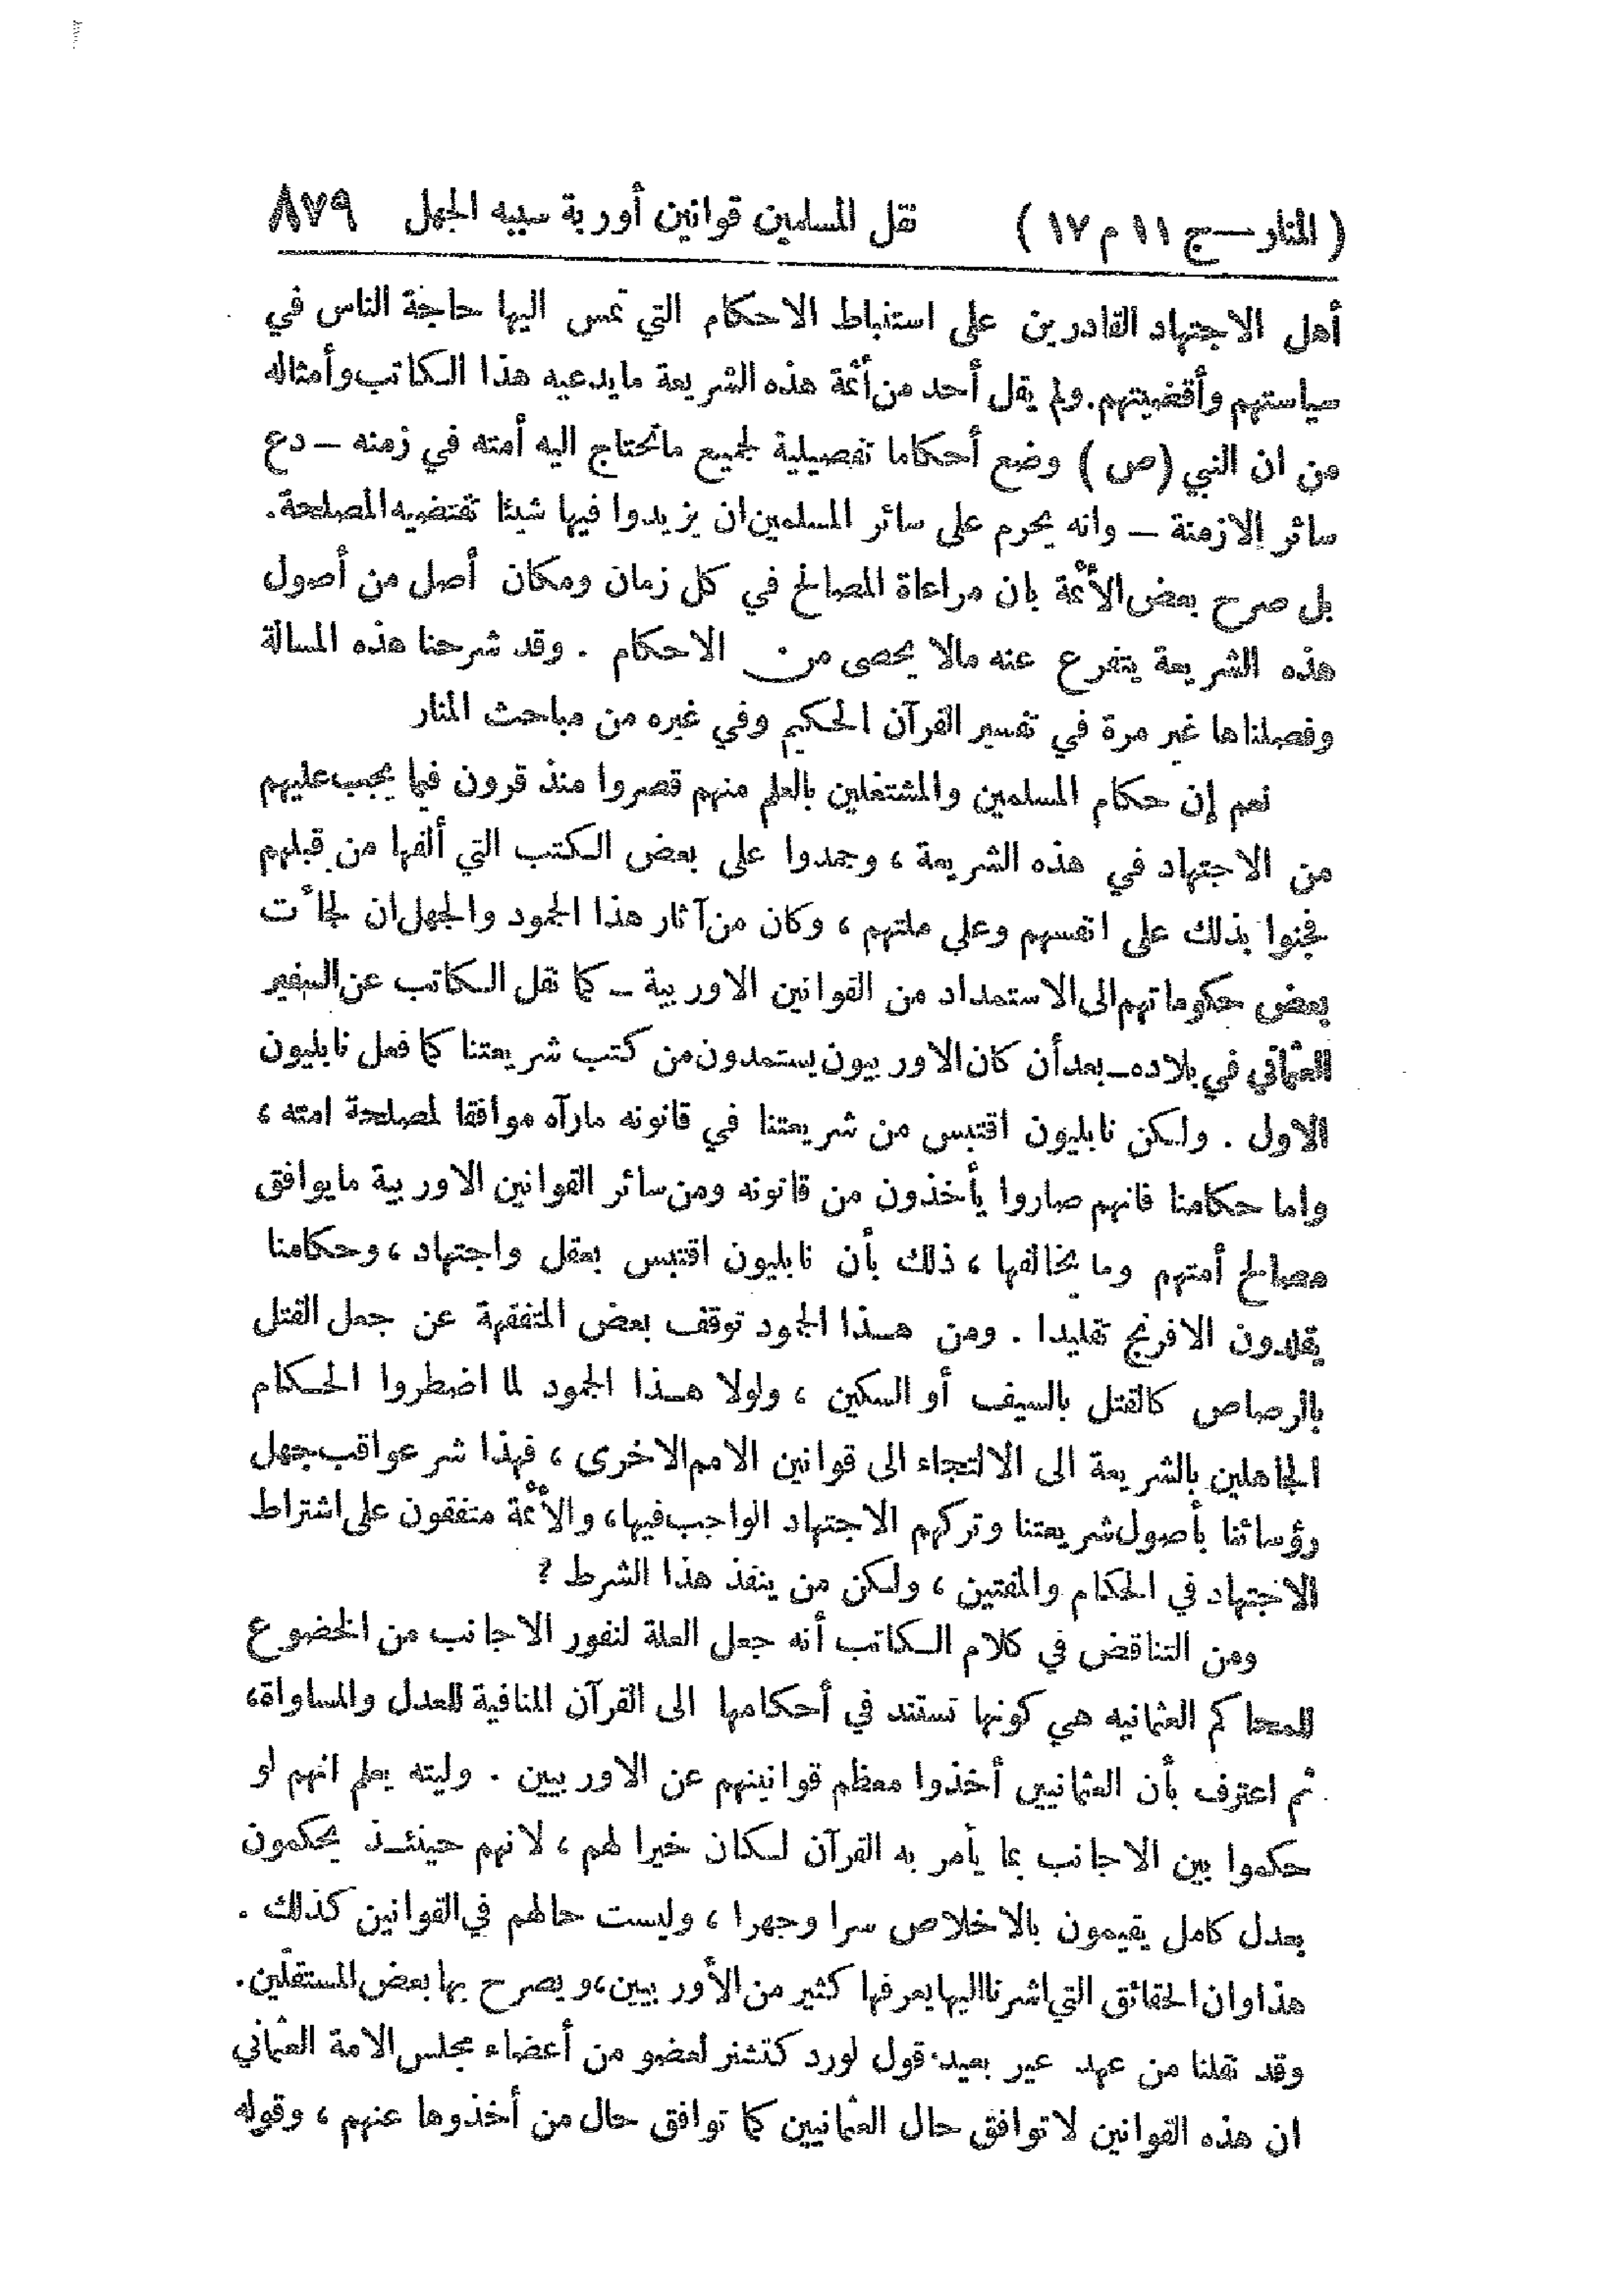 ( المنار — ج ١١ م ١٧ ) نقل المسلمين قوانين أوربة سببه الجهل ٨٧٩
أهل الاجتهاد القادرين على استنباط الاحكام التي تمس اليها حاجة الناس في
سياستهم وأقضيتهم. ولم يقل أحد من أئمة هذه الشريعة ما يدعيه هذا الكاتب وأمثاله
من ان النبي (ص) وضع أحكاما تفصيلية لجميع ما تحتاج اليه أمته في زمنه — دع
سائر الازمنة — وانه يحرم على سائر المسلمين ان يزيدوا فيها شيئا تقتضيه المصلحة.
بل صرح بعض الأئمة بان مراعاة المصالح في كل زمان ومكان أصل من أصول
هذه الشريعة يتفرع عنه مالا يحصى من الاحكام . وقد شرحنا هذه المسالة
وفصلناها غير مرة في تفسير القرآن الحكيم وفي غيره من مباحث المنار
نعم إن حكام المسلمين والمشتغلين بالعلم منهم قصروا منذ قرون فيما يجب عليهم
من الاجتهاد في هذه الشريعة ، وجمدوا على بعض الكتب التي ألفها من قبلهم
فجنوا بذلك على انفسهم وعلى ملتهم ، وكان من آثار هذا الجمود والجهل ان لجأت
بعض حكوماتهم الى الاستمداد من القوانين الاوربية — كما نقل الكاتب عن السفير
العثماني في بلاده — بعد أن كان الاوربيون يستمدون من كتب شريعتنا كما فعل نابليون
الاول . ولكن نابليون اقتبس من شريعتنا في قانونه مارآه موافقا لمصلحة امته ،
واما حكامنا فانهم صاروا يأخذون من قانونه ومن سائر القوانين الاوربية ما يوافق
مصالح أمتهم وما يخالفها ، ذلك بأن نابليون اقتبس بعقل واجتهاد ، وحكامنا
يقلدون الافرنج تقليدا . ومن هذا الجمود توقف بعض المتفقهة عن جعل القتل
بالرصاص كالقتل بالسيف أو السكين ، ولولا هذا الجمود لما اضطروا الحكام
الجاهلين بالشريعة الى الالتجاء الى قوانين الامم الاخرى ، فهذا شر عواقب جهل
رؤسائنا بأصول شريعتنا وتركهم الاجتهاد الواجب فيها، والأئمة متفقون على اشتراط
الاجتهاد في الحكام والمفتين ، ولكن من ينفذ هذا الشرط ؟
ومن التناقض في كلام الكاتب أنه جعل العلة لنفور الاجانب من الخضوع
للمحاكم العثمانيه هي كونها تستند في أحكامها الى القرآن المنافية للعدل والمساواة،
ثم اعترف بأن العثمانيين أخذوا معظم قوانينهم عن الاوربيين . وليته يعلم انهم لو
حكموا بين الاجانب بما يأمر به القرآن لكان خيرا لهم ، لانهم حينئذ يحكمون
بعدل كامل يقيمون بالاخلاص سرا وجهرا ، وليست حالهم في القوانين كذلك .
هذا وان الحقائق التي اشرنا اليها يعرفها كثير من الأوربيين، ويصرح بها بعض المستقلين.
وقد نقلنا من عهد عير بعيد قول لورد كتشنر لعضو من أعضاء مجلس الامة العثماني
ان هذه القوانين لا توافق حال العثمانيين كما توافق حال من أخذوها عنهم ، وقوله